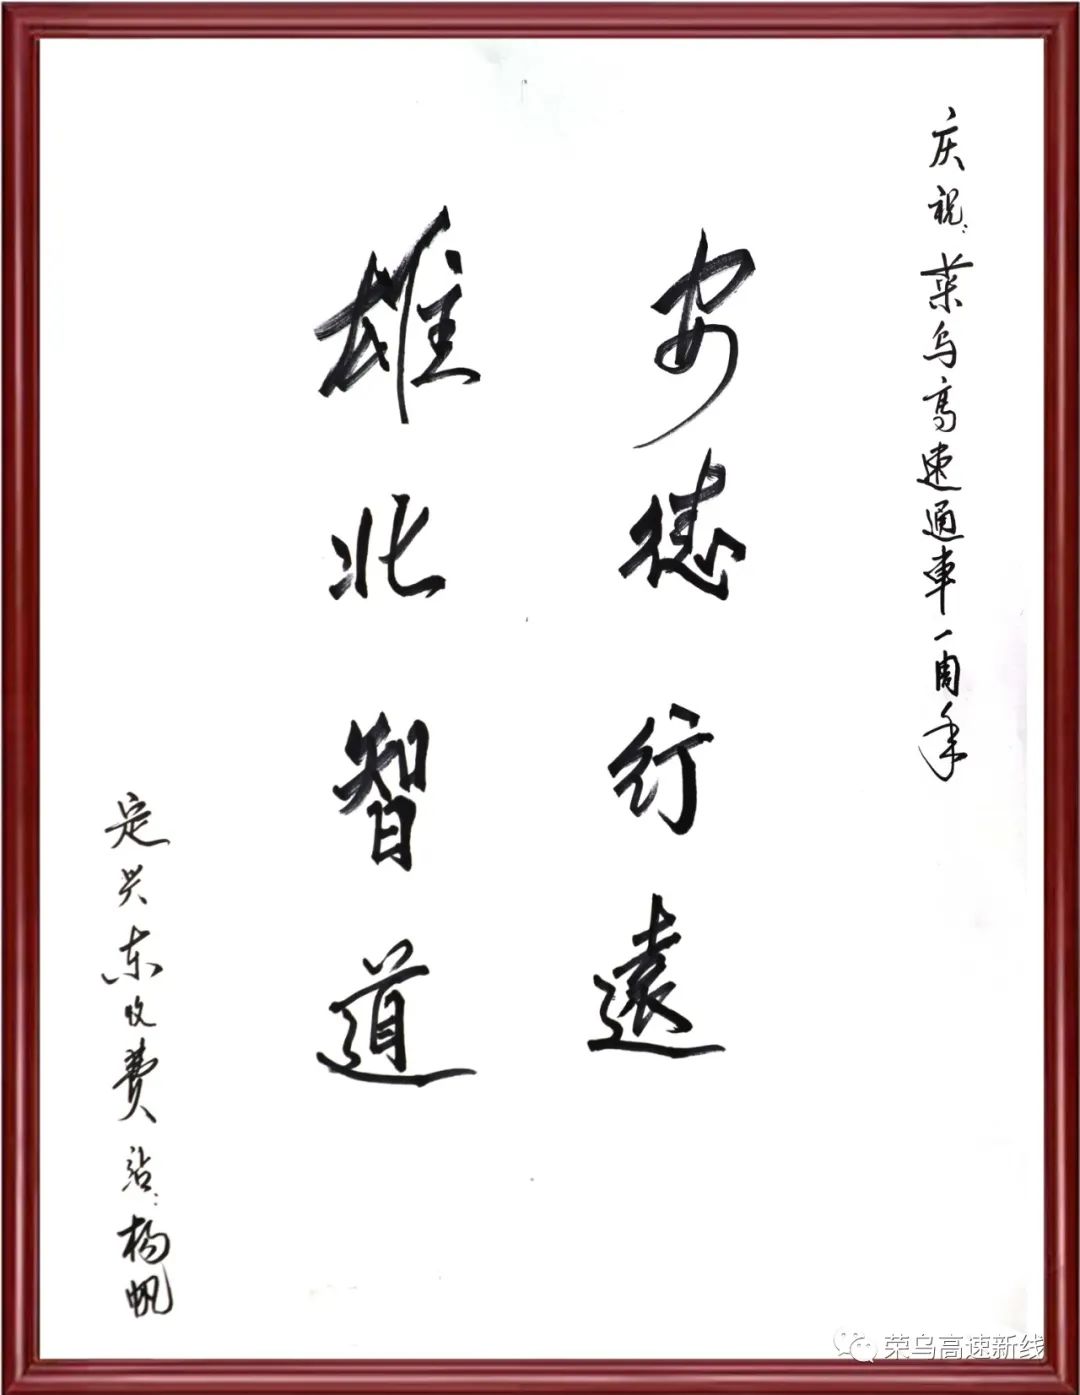 庆祝:荣乌高速通車一周年
安德行遠
雄北智道
定兴东收费站:杨帆
荣乌高速新线